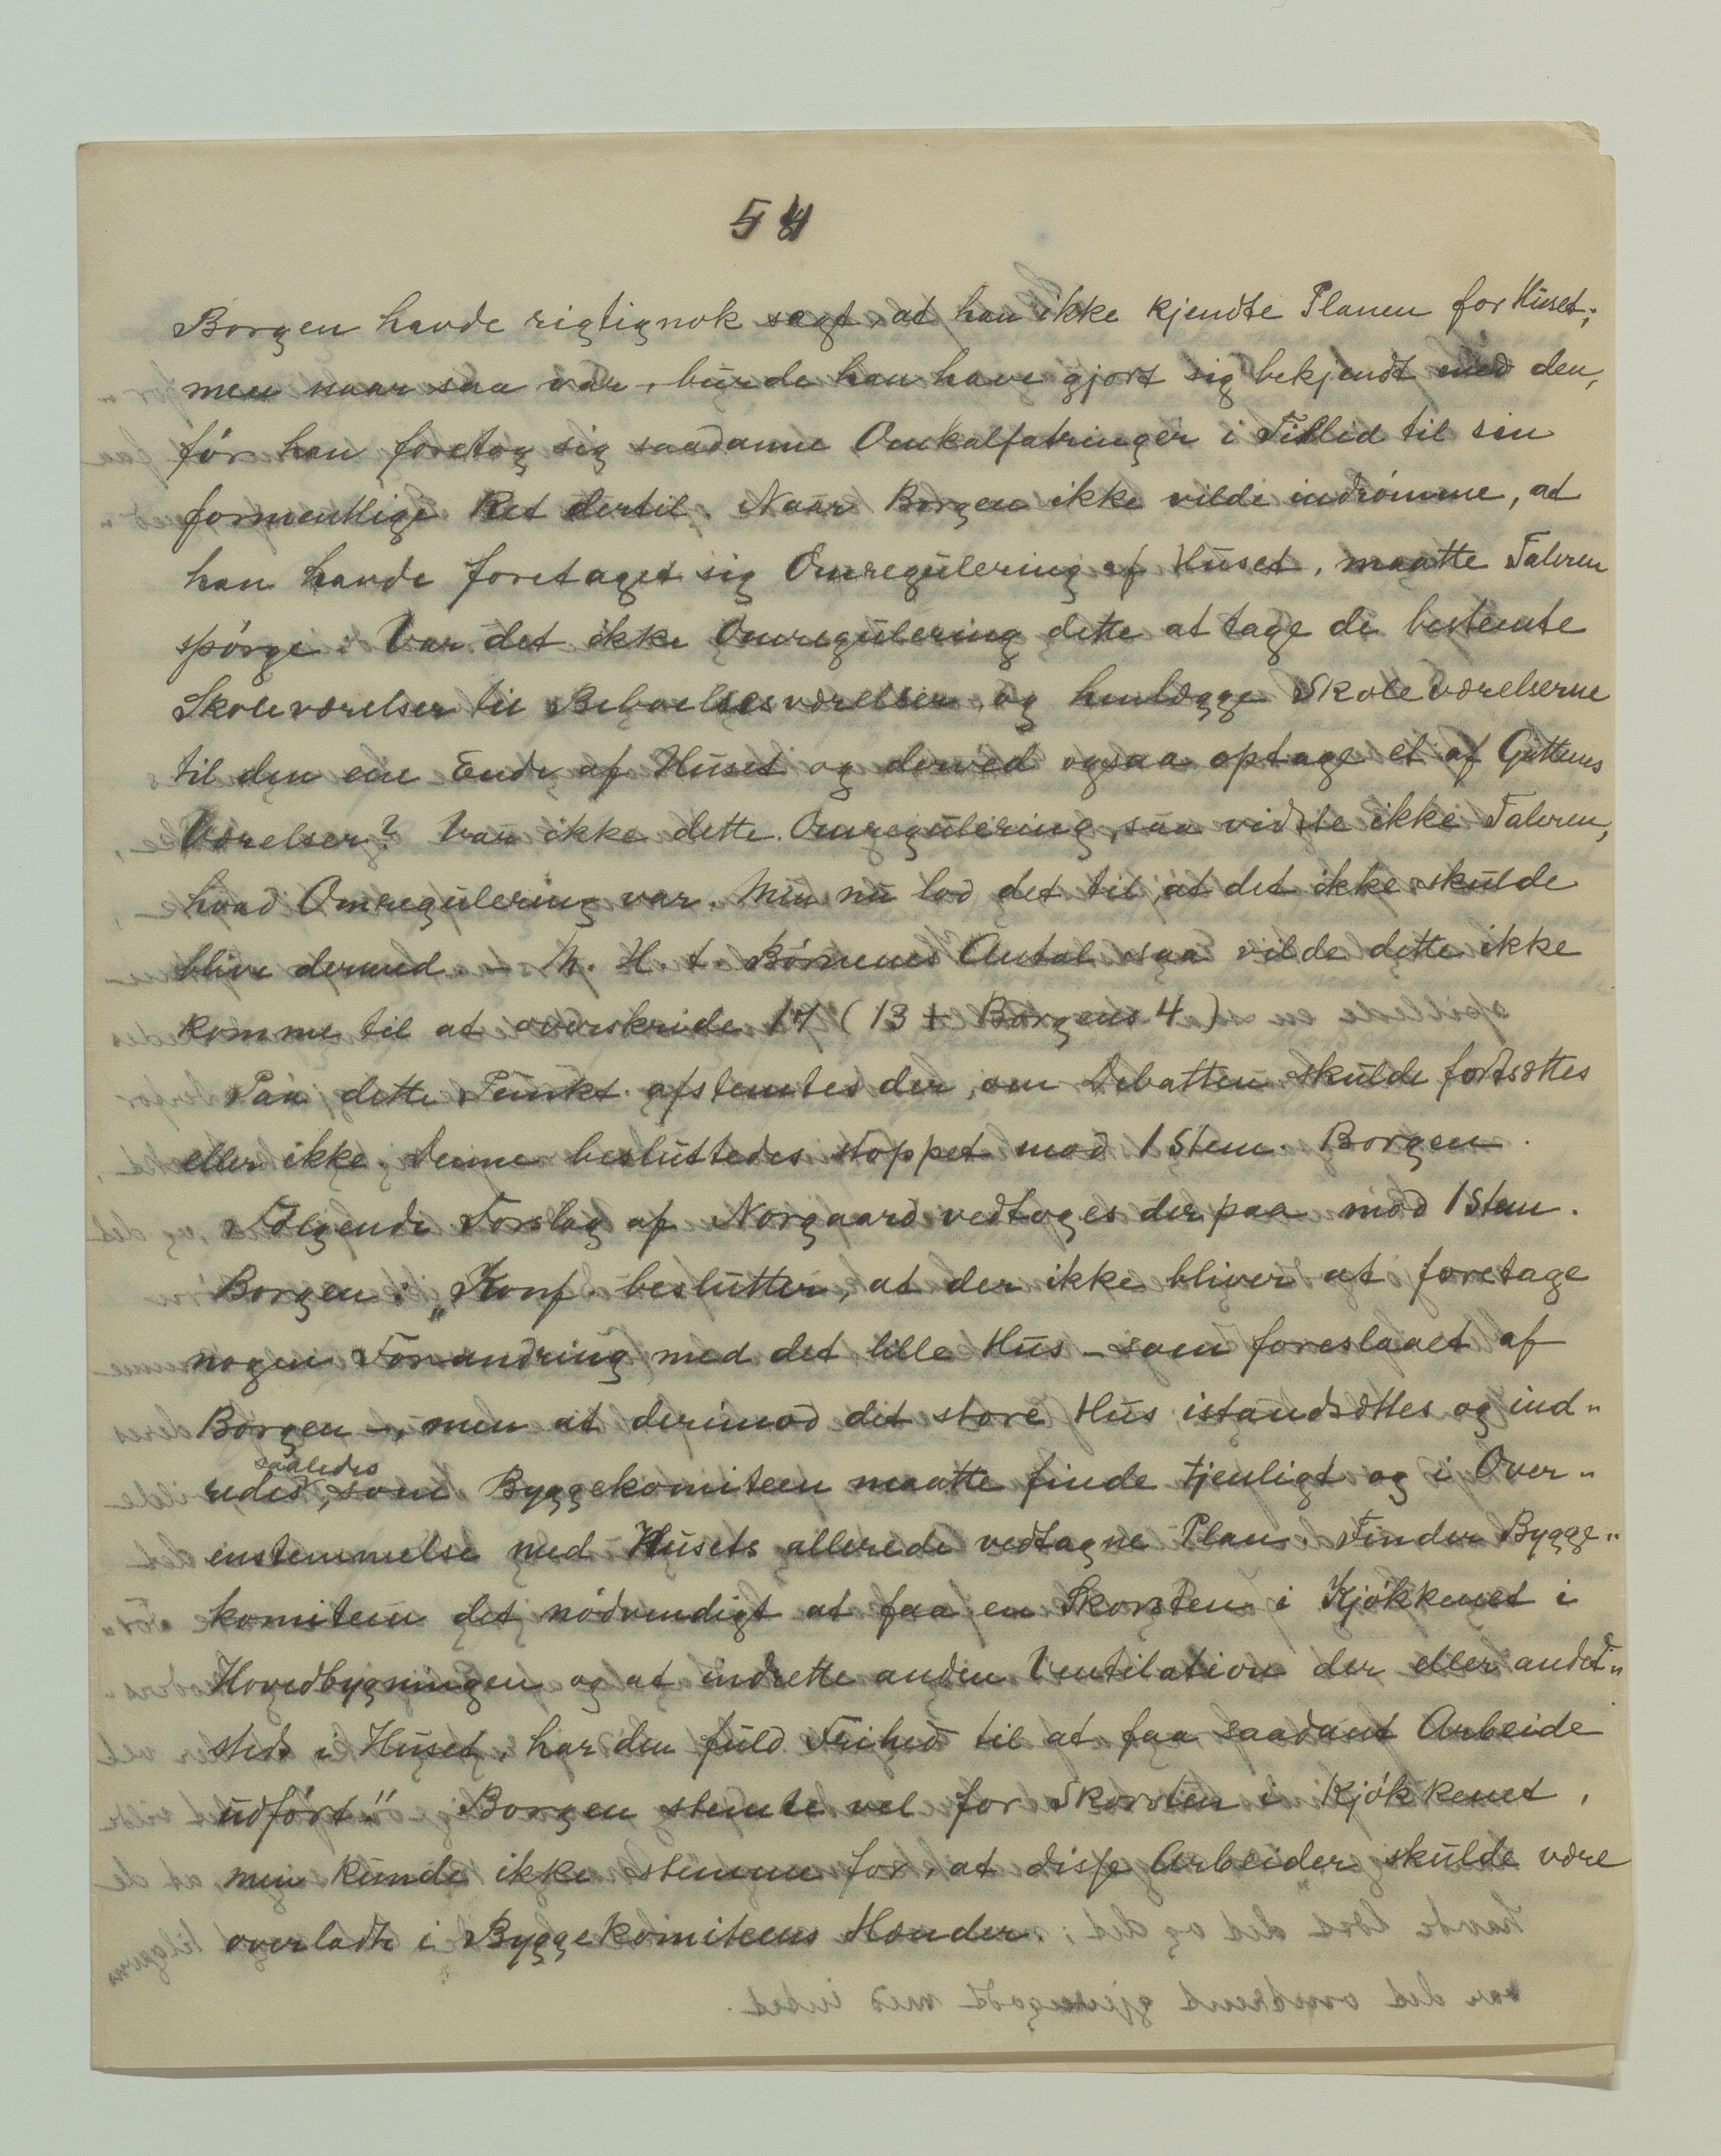 54
Borgen havde rigtignok sagt, at han ikke kjendte Planen for Huset;
men naar saa var, burde han have gjort sig bekjendt med den,
før han foretog sig saadanne Omkalfatringer i Tillid til sin
formentlige Ret dertil. Naar Borgen ikke vilde indrømme, at
han havde foretaget sig Omregulering af Huset, maatte Taleren
spørge: Var det ikke Omregulering dette at tage de bestemte
Skoleværelser til Beboelsesværelser og henlægge Skoleværelserne
til den ene Ende af Huset og derved ogsaa optage et af Gutternes
Værelser? Var ikke dette Omregulering, saa vidste ikke Taleren,
hvad Omregulering var. Men nu lod det til, at det ikke skulde
blive dermed. – M. H. t. Børnenes Antal saa vilde dette ikke
komme til at overskride 17 (13 + Borgens 4)
Paa dette Punkt afstemtes der, om Debatten skulde fortsættes
eller ikke. Denne besluttedes stoppet mod 1 Stem. Borgen.
Følgende Forslag af Norgaard vedtoges derpaa mod 1 Stem.
Borgen: „Konf. beslutter, at der ikke bliver at foretage
nogen Forandring med det lille Hus – som foreslaaet af
Borgen –, men at derimod det store Hus istandsættes og ind-
redes, saaledes som Byggekomiteen maatte finde tjenligt og i Over-
enstemmelse med Husets allerede vedtagne Plan. Finder Bygge-
komiteen det nødvendigt at faa en Skorsten i Kjøkkenet i
Hovedbygningen og at indrette anden Ventilation der eller andet-
steds i Huset, har den fuld Frihed til at faa saadant Arbeide
udført." Borgen stemte vel for Skorsten i Kjøkkenet,
men kunde ikke stemme for, at disse Arbeider skulde være
overladte i Byggekomiteens Hænder.